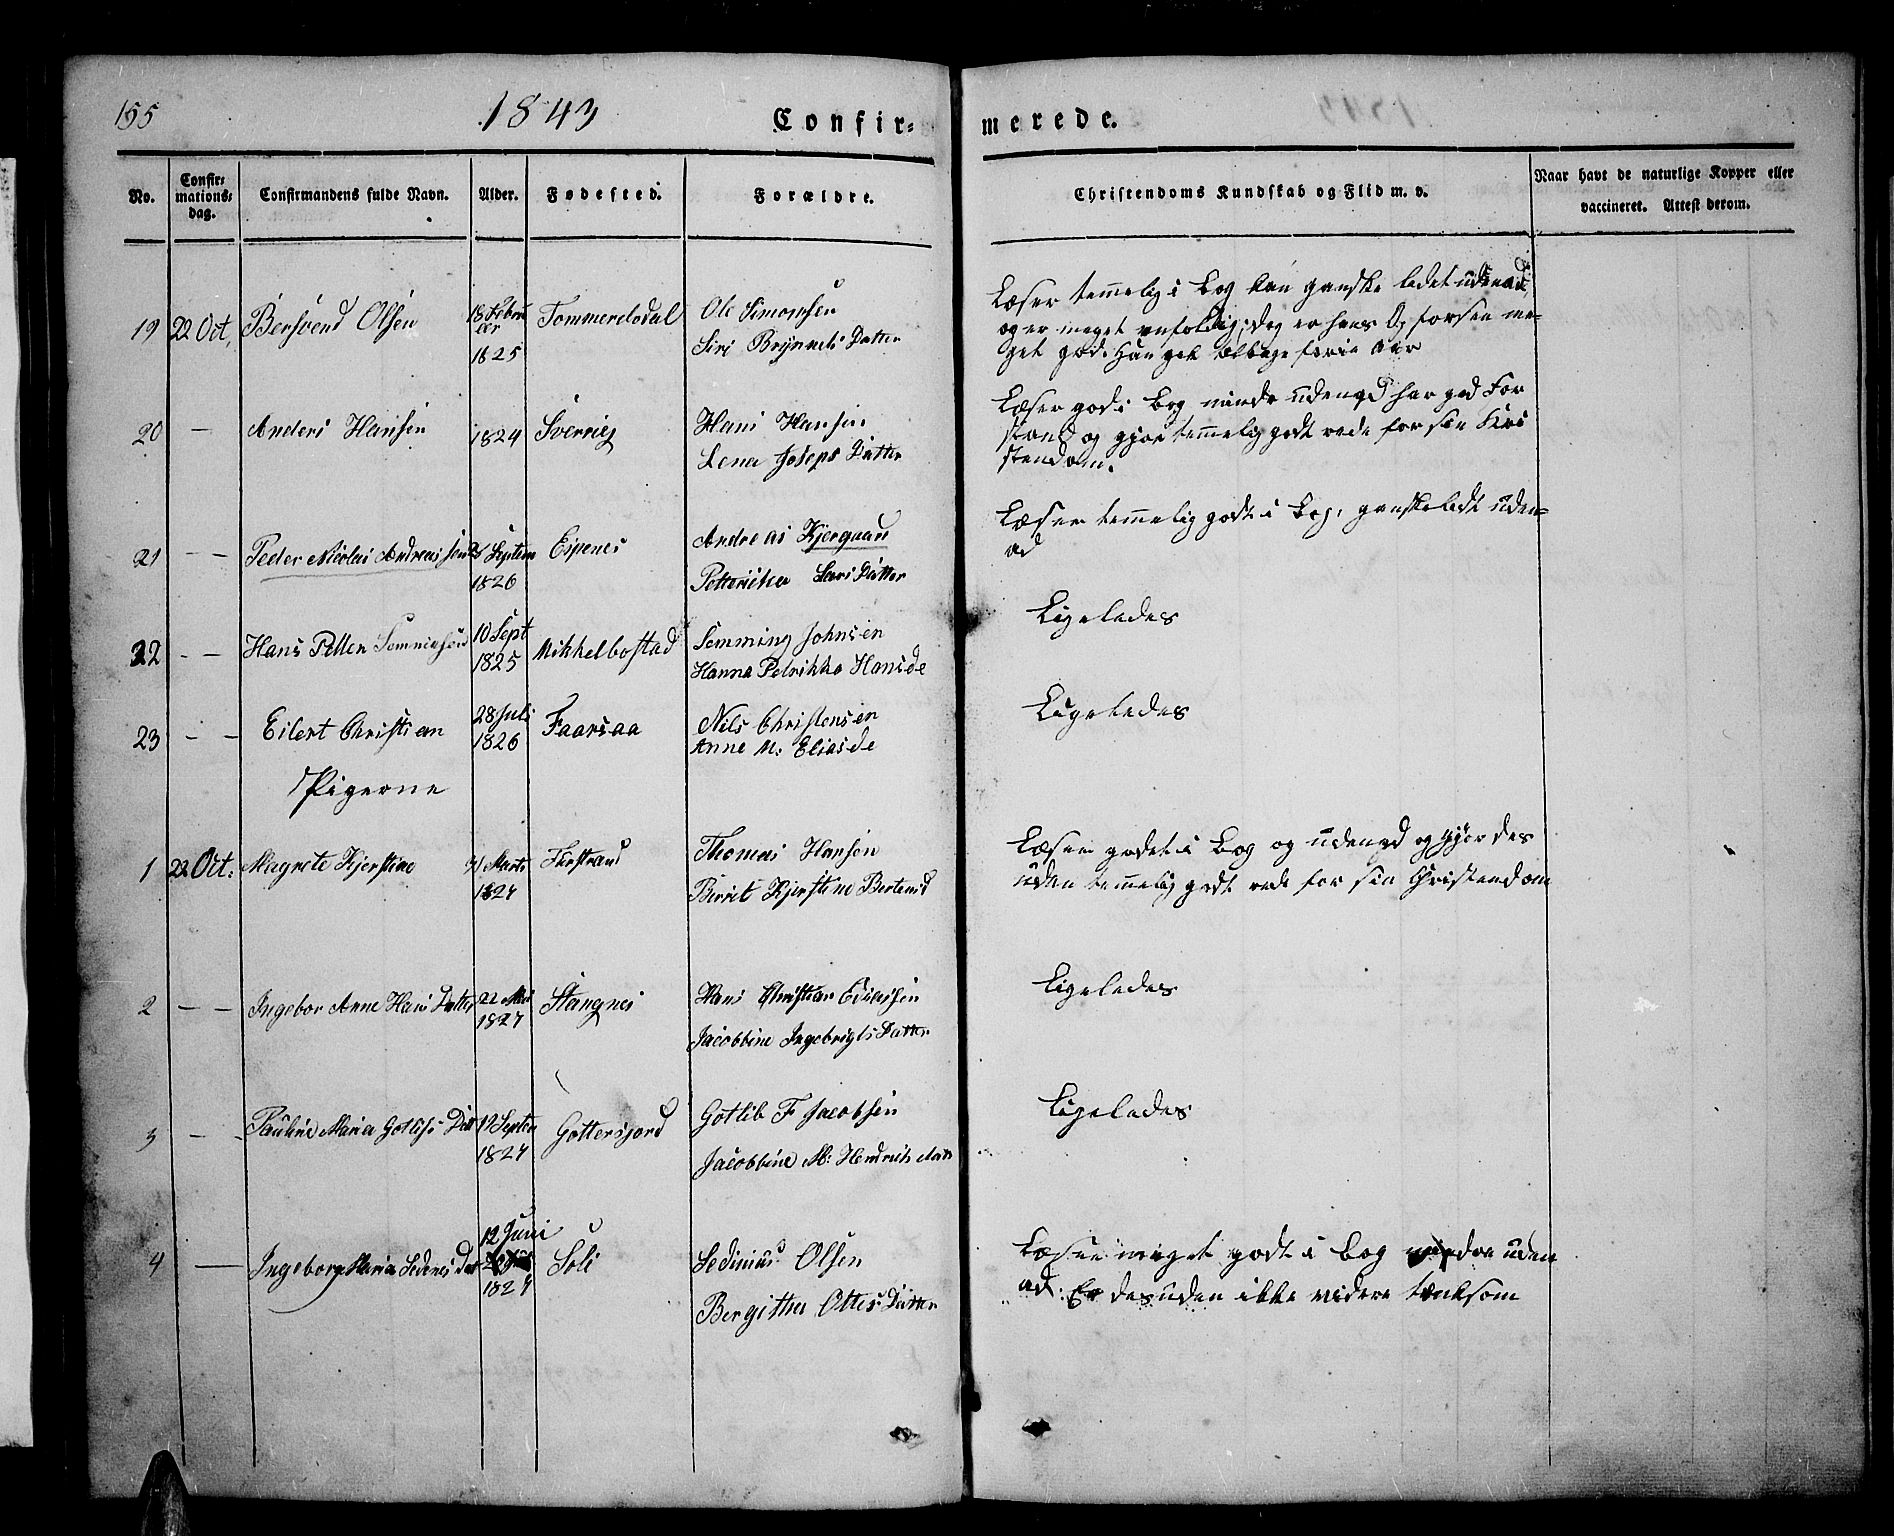 155
1843
Confir-
merede.
No.
Confir-
mations-
dag.
Confirmandens fulde Navn.
Alder.
Fødested.
Forældre.
Christendoms Kundskab og Flid m. v.
Naar havt de naturlige Kopper eller
vaccineret. Attest derom.
19 22 Oct, Bersvend Olsen 18 Febru
ar
1825
Ole Simonsen
Siri Brynnels Datter
Læser temmelig i Bog kun ganske ledet udenad,
og er meget enfoldig; dog er hans Opførsen me-
get god. Han gik tilbage forie Aar
20 — Anders Hansen 1824 Sverrig
Hans Hansen
Lena Joseps Datter
Læser god i Bog, mindr udenad har god For
stand og gjør temmelig godt rede for sin Kri
stendom.
21 — — Peder Nicolai Andreas sen 25 Septem
1826
Espenes
Andreas Kjergaard
Petterikka Lars Datter
Læser temmelig godt i Bog, ganske ledt uden-
ad
22 — — Hans Petter Semmingsen 10 Sept
1825
Mikkelbostad
Semming Johnsen
Hanna Petrikka Hansde
Ligeledes
23 — — Eilert Christian 28 Juli
1826
Faarsaa
Nils Christensen
Anne M: Eliasde
Ligeledes
Pigerne
1 22 Oct: Magrete Kjerstine 21 Marts
1827
Thomas Hansen
Berret Kjerstine Bertends
Læser godt i Bog og udenad og gjør des
uden temmelig godt rede for sin Christendom
2 — — Ingebor Anne Hans Datter 22 Mai
1827
Stangnes
Hans Christian
Jacobbine Ingebrigts Datter
Ligeledes
3 — — Pauline Maria Gotlibs Datt 19 Septem
1827
Gottersjord
Gotlib F Jacobsen
Jacobbine M: Hendriks Datt
Ligeledes
4 — Ingeborg Maria Sedenis Dat 12 Juni
1827
Soli
Sedinius Olsen
Bergitha Ottes Datter
Læser meget godt i Bog mindre uden
ad: Er desuden ikke videre tænksom